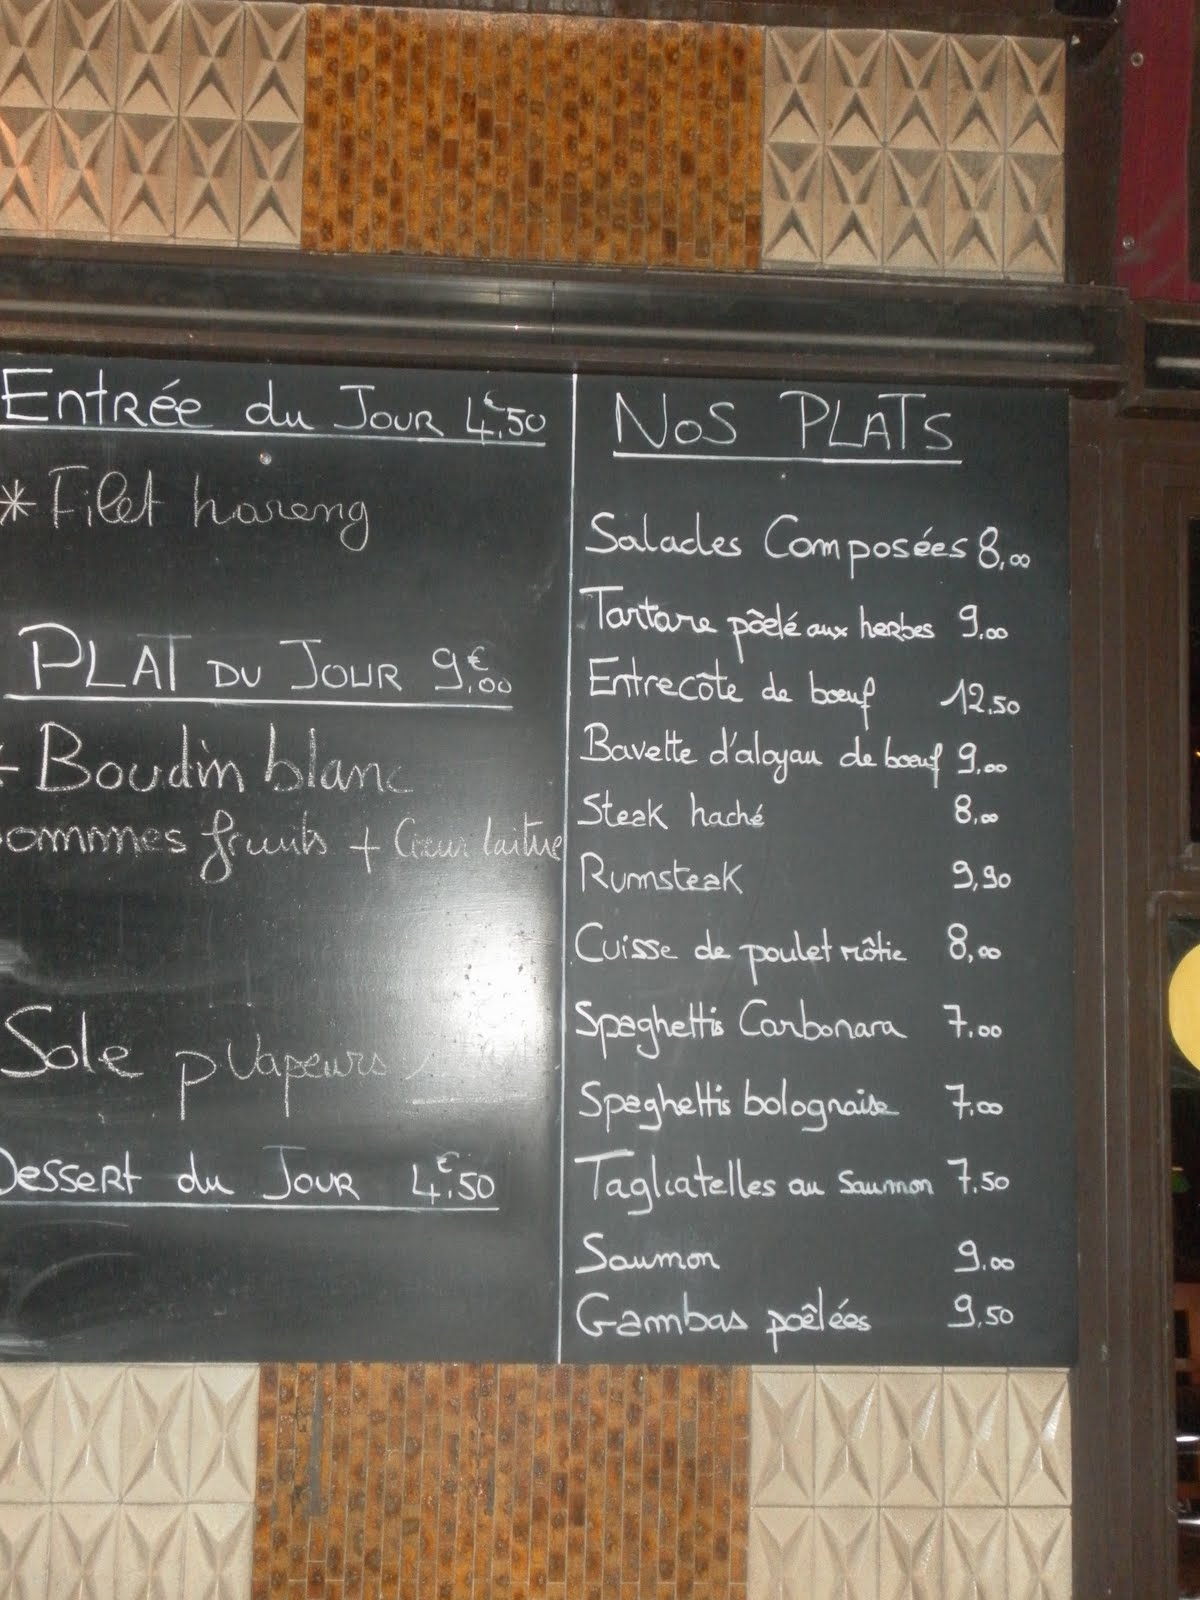 Entrée du Jour 4€,50
* Filet hareng
PLAT DU JOUR 9€,00
Boudin blanc
fruits + Coeur laitue
Sole p vapeurs
Dessert du Jour 4€,50
NOS PLATS
Salades Composées 8,00
Tartare pôelé aux herbes 9.00
Entrecôte de bœuf 12.50
Bavette d'aloyau de bœuf 9,00
Steak haché 8,00
Rumsteak 9,90
Cuisse de poulet rôtie 8,00
Spaghettis Carbonara 7.00
Spaghettis bolognaise 7.00
Tagliatelles au saumon 7.50
Saumon 9.00
Gambas poêlées 9,50